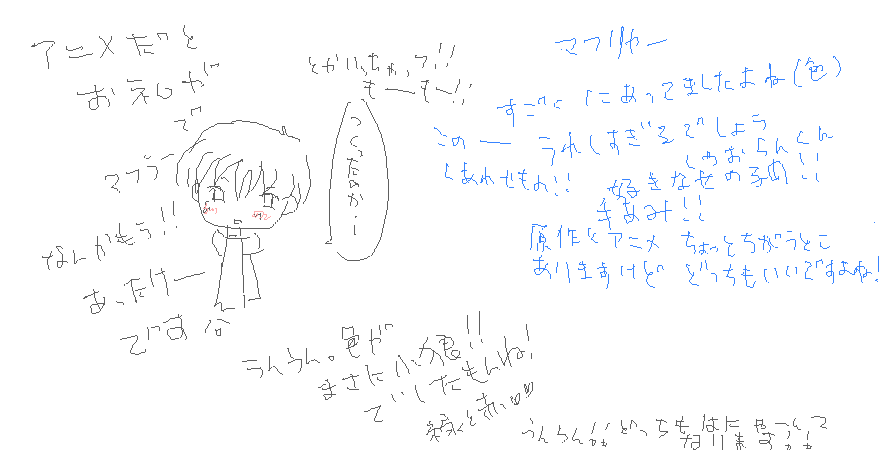 アニメだと
おえしが
で
マフラー
なんかもう!!
あったけー
です
とかいっちゃって!!
もーもー!!
つくったのか!
うんうん。色が
まさに
でしたもんね!
緑と赤
マフリャー
すごくにあってましたよね(色)
この ー うれしすぎるでしょう
くあれせもん!! しゃおらんくん
好きな女の子の!!
手あみ!!
原作とアニメ ちょっとちがうとこ
ありますけど どっちもいいですよね!
うんうん!! どっちもはにゃーんって
なります!!